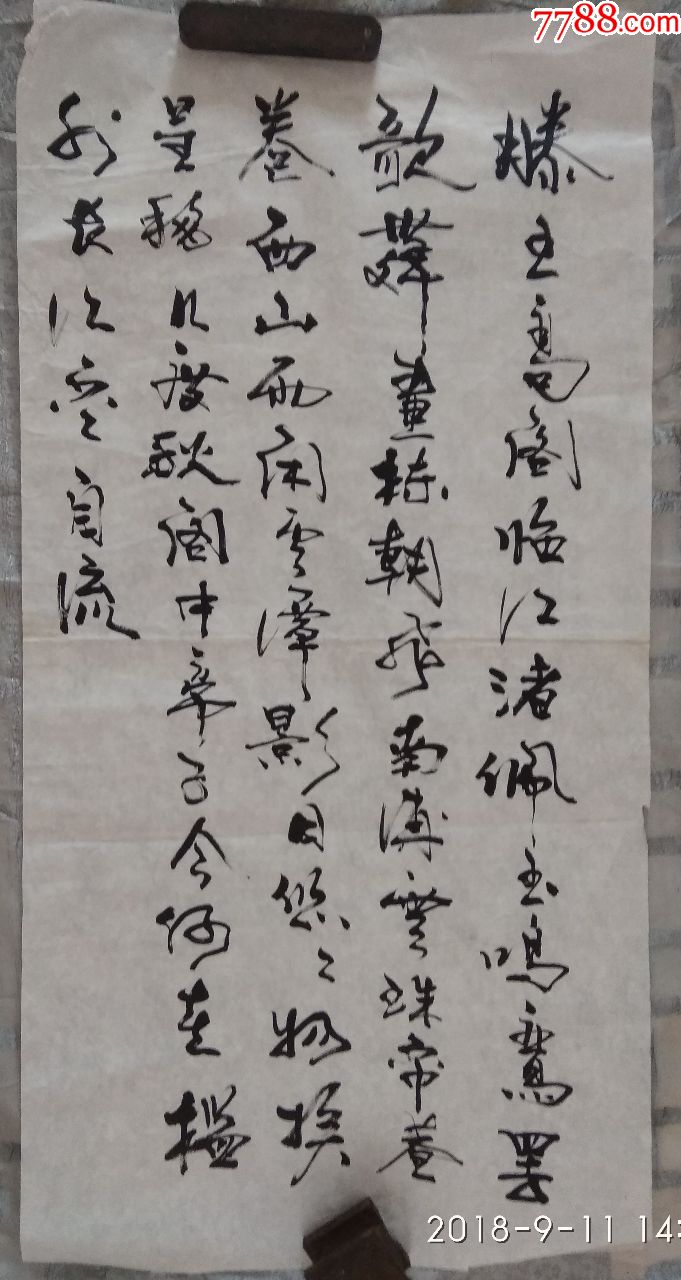 7788.com
滕王高阁临江渚佩玉鳴鸞罢
歌舞畫棟朝飛南浦雲珠帘暮
卷西山雨闲雲潭影日悠々物换
星移几度秋阁中帝子今何在檻
外长江空自流
2018-9-11 14: